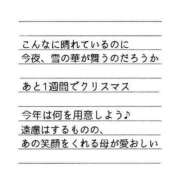 こんなに晴れているのに
今夜、雪の華が舞うのだろうか
あと1週間でクリスマス
今年は何を用意しよう♪
遠慮はするものの、
あの笑顔をくれる母が愛おしい